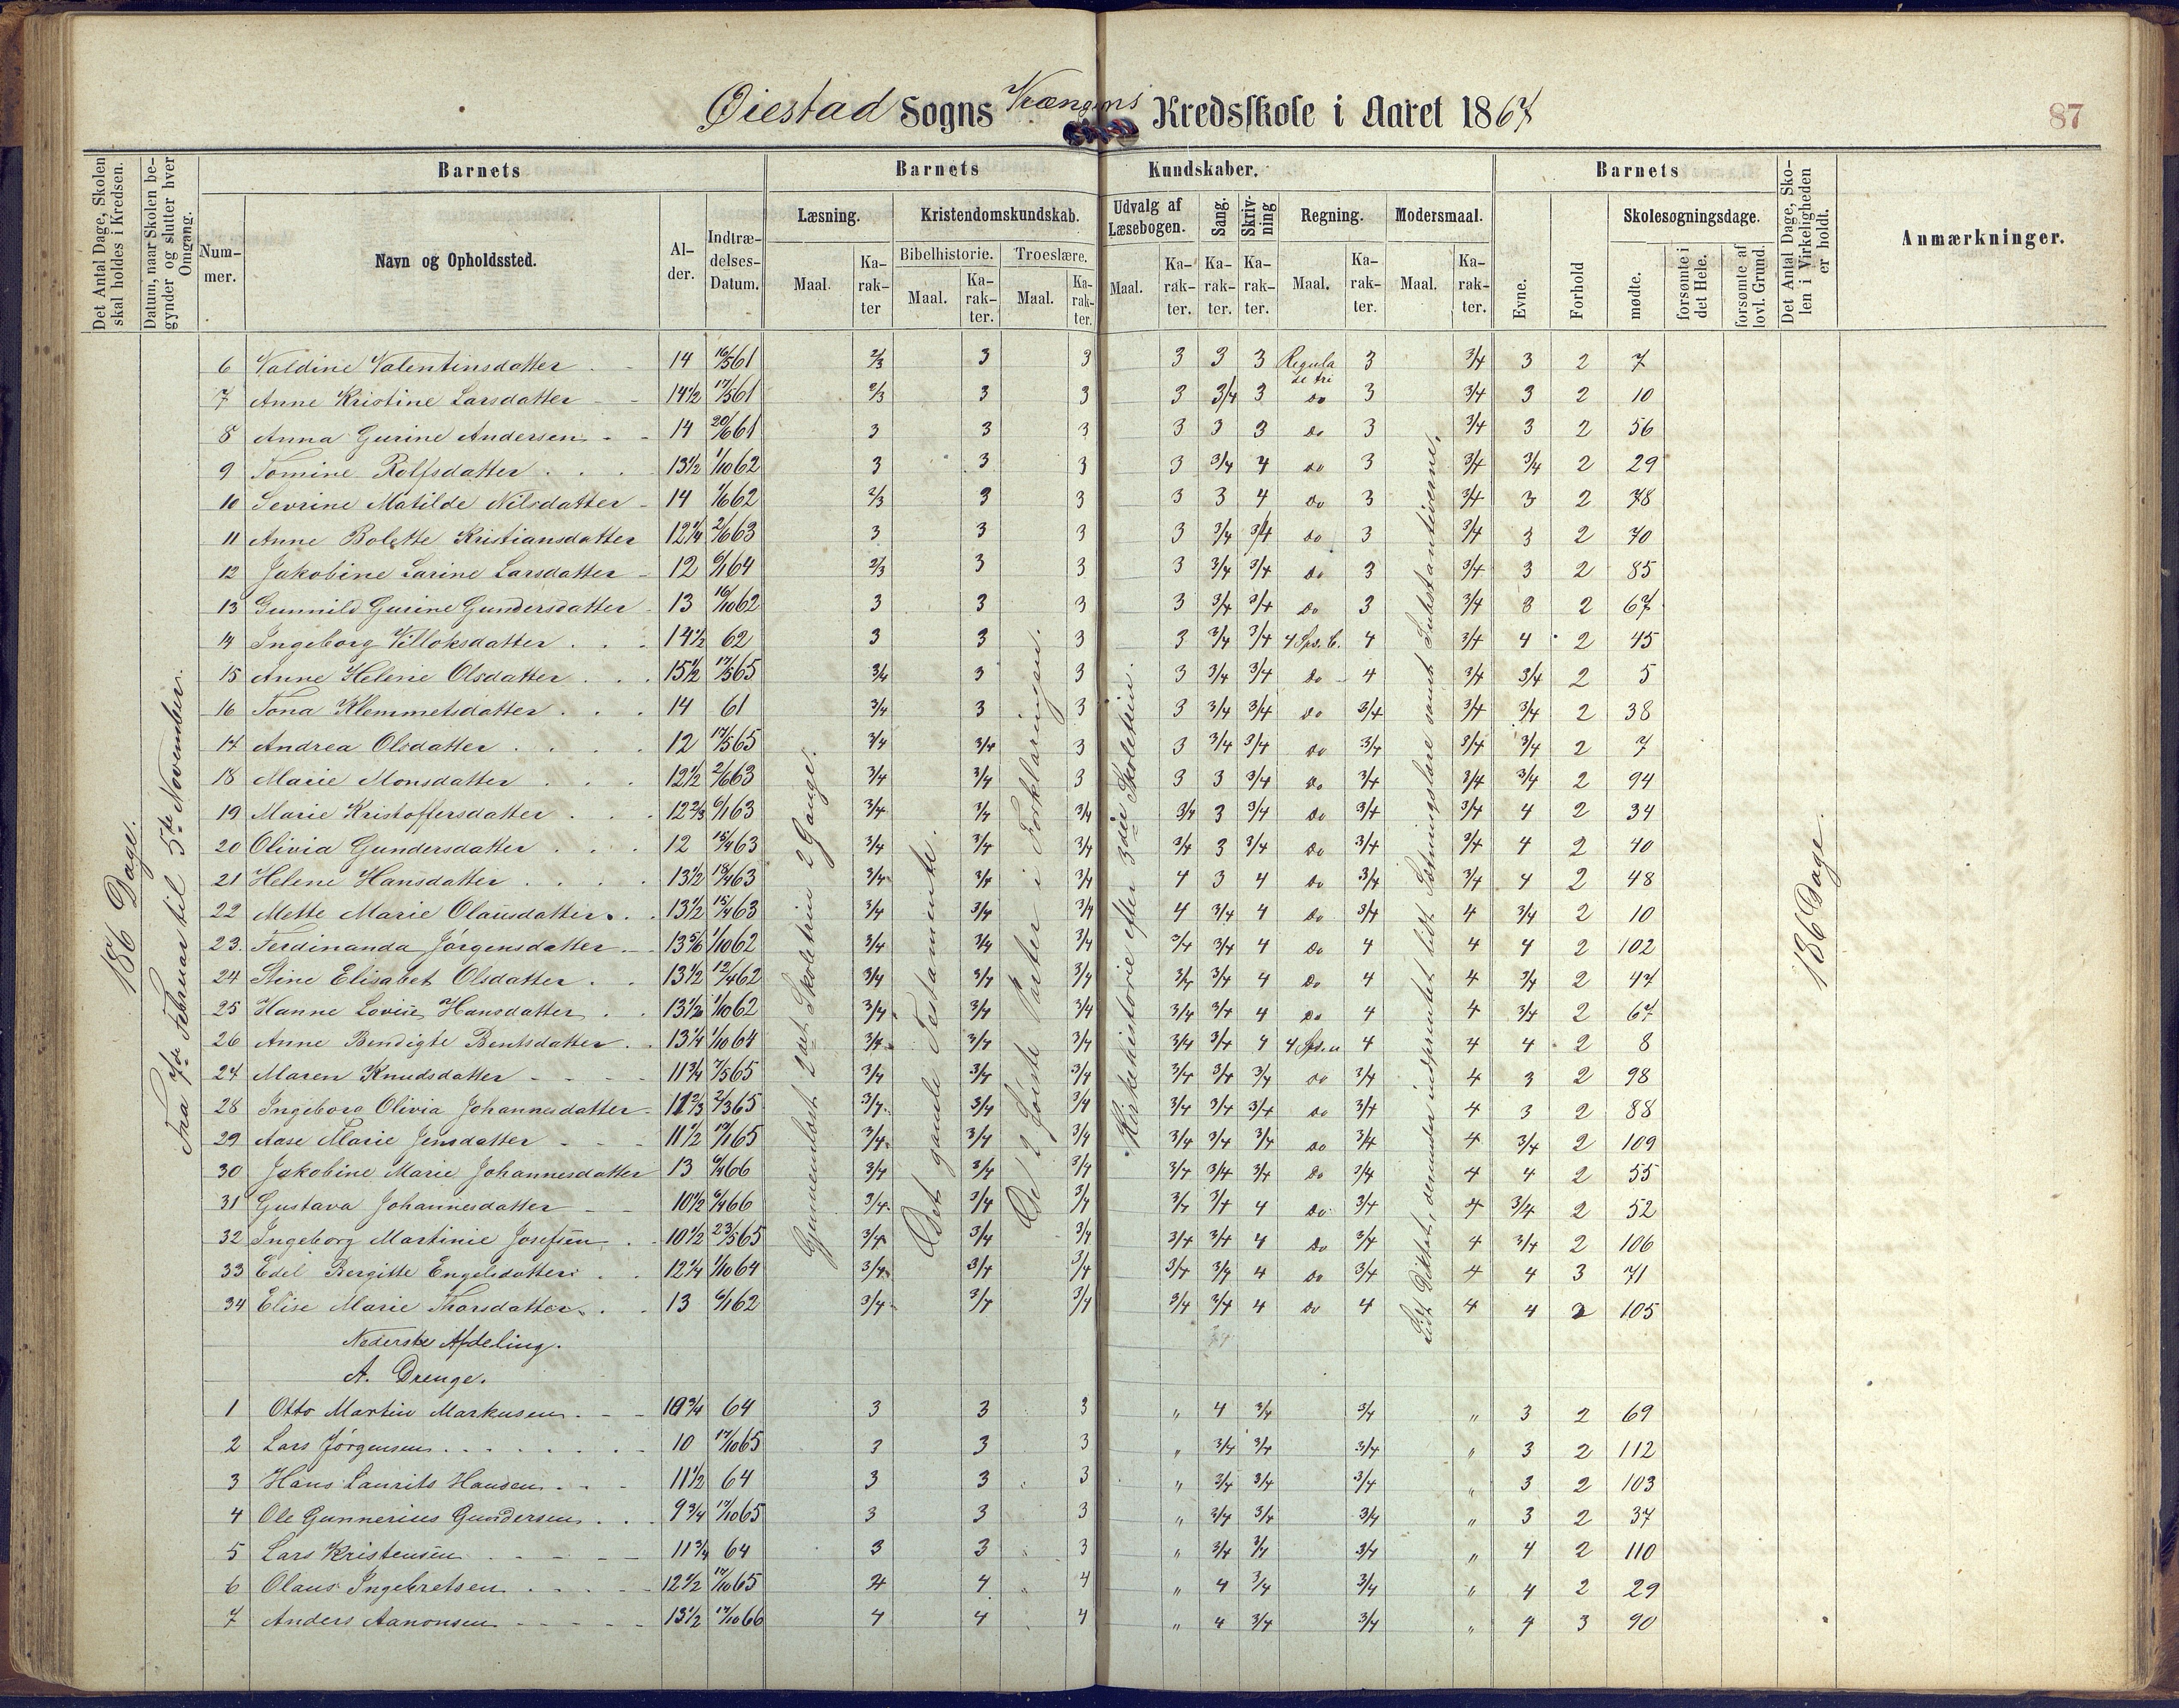 Øiestad Sogns Krængens Kredsskole i Aaret 1867
87
Det Antal Dage, Skolen skal holdes i Kredsen.
Datum, naar Skolen begynder og slutter hver Omgang.
Barnets
Barnets Kundskaber.
Barnets
Det Antal Dage, Skolen i Virkeligheden er holdt.
Anmærkninger.
Nummer.
Navn og Opholdssted.
Alder.
Indtrædelses-Datum.
Læsning.
Kristendomskundskab.
Udvalg af Læsebogen.
Sang.
Skrivning
Regning.
Modersmaal.
Evne.
Forhold
Skolesøgningsdage.
Bibelhistorie.
Troeslære.
Maal.
Karakter
Maal.
Karakter.
Maal.
Karakter.
Maal.
Karakter.
Karakter.
Karakter.
Maal.
Karakter.
Maal.
Karakter.
mødte.
forsømte i det Hele.
forsømte af lovl. Grund.
186 Dage.
Fra 7de Februar til 5te November.
Gjennemlæst 2det Skoletrin 2 Gange.
Det gamle Testamente.
De 2 første Parter i Forklaringen.
Kirkehistorie efter 3die Skoletrin.
Lidt Diktat, derunder indprentet lidt Sætningslære samt Substantiverne.
186 Dage.
6 Valdine Valentinsdatter 14 16/5 61 2/3 3 3 3 3 3 Regula de tri 3 3/4 3 2 7
7 Anne Kristine Larsdatter 14 1/2 17/5 61 2/3 3 3 3 3/4 3 Do 3 3/4 3 2 10
8 Anna Gurine Andersen 14 20/6 61 3 3 3 3 3 3 Do 3 3/4 3 2 56
9 Tomine Rolfsdatter 13 1/2 1/10 62 3 3 3 3 3/4 4 Do 3 3/4 3/4 2 29
10 Sevrine Matilde Nilsdatter 14 1/6 62 2/3 3 3 3 3 4 Do 3 3/4 3 2 78
11 Anne Bolette Kristiansdatter 12 1/4 2/6 63 3 3 3 3 3/4 3/4 Do 3 3/4 3 2 70
12 Jakobine Larine Larsdatter 12 6/1 64 2/3 3 3 3 3/4 3/4 Do 3 3/4 3 2 85
13 Gunnild Gurine Gundersdatter 13 16/10 62 3 3 3 3 3/4 3/4 Do 3 3/4 3 2 67
14 Ingeborg Villoksdatter 14 1/2 62 3 3 3 3 3/4 3/4 4 Sps. b. 4 3/4 4 2 45
15 Anne Helene Olsdatter 15 1/2 17/5 65 3/4 3 3 3 3/4 3/4 Do 4 3/4 3/4 2 5
16 Tona Klemmetsdatter 14 61 3/4 3 3 3 3/4 3/4 Do 3/4 3/4 3/4 2 38
17 Andrea Olsdatter 12 17/5 65 3/4 3/4 3 3 3/4 3/4 Do 3/4 3/4 3/4 2 7
18 Marie Monsdatter 12 1/2 2/6 63 3/4 3/4 3 3 3 3/4 Do 3/4 3/4 3/4 2 94
19 Marie Kristoffersdatter 12 2/3 6/1 63 3/4 3/4 3/4 3/4 3 3/4 Do 3/4 3/4 4 2 34
20 Olivia Gundersdatter 12 15/4 63 3/4 3/4 3/4 3/4 3 3/4 Do 3/4 3/4 4 2 40
21 Helene Hansdatter 13 1/2 18/4 63 3/4 3/4 3/4 4 3 4 Do 3/4 3/4 4 2 48
22 Mette Marie Olausdatter 13 1/2 15/4 63 3/4 3/4 3/4 4 3/4 4 Do 3/4 4 3/4 2 10
23. Ferdinanda Jørgensdatter 13 5/6 1/10 62 3/4 3/4 3/4 3/4 3/4 4 Do 4 4 4 2 102
24 Stine Elisabet Olsdatter 13 1/2 12/4 62 3/4 3/4 3/4 3/4 3/4 4 Do 4 4 3/4 2 47
25 Hanne Lovise Hansdatter 13 1/2 1/10 62 3/4 3/4 3/4 3/4 3/4 4 Do 4 4 3/4 2 67
26 Anne Bendigte Bentsdatter 13 1/4 1/10 64 3/4 3/4 3/4 3/4 3/4 4 4 Sps. u 4 4 4 2 8
27 Maren Knudsdatter 11 3/4 7/5 65 3/4 3/4 3/4 3/4 3/4 3/4 Do 3/4 4 3 2 98
28 Ingeborg Olivia Johannesdatter 11 2/3 2/3 65 3/4 3/4 3/4 3/4 3/4 3/4 Do 3/4 4 3 2 88
29 Aase Marie Jensdatter 11 1/2 17/1 65 3/4 3/4 3/4 3/4 3/4 3/4 Do 3/4 4 3/4 2 109
30 Jakobine Marie Johannesdatter 13 6/4 66 3/4 3/4 3/4 3/4 3/4 3/4 Do 3/4 4 4 2 55
31 Gustava Johannesdatter 10 1/2 6/4 66 3/4 3/4 3/4 3/4 3/4 4 Do 3/4 4 3/4 2 52
32 Ingeborg Martinie Josefsen 10 1/2 23/5 65 3/4 3/4 3/4 3/4 3/4 4 Do 3/4 4 3/4 2 106
33 Edel Bergitte Engelsdatter 12 1/4 1/10 64 3/4 3/4 3/4 3/4 3/4 4 Do 3/4 4 4 3 71
34 Elise Marie Thorsdatter 13 6/1 62 3/4 3/4 3/4 3/4 3/4 4 Do 4 4 4 3 105
Nederste Afdeling.
A. Drenge.
1 Otto Martin Markusen 10 3/4 64 3 3 3 " 4 3/4 3/4 " 3 2 69
2 Lars Jørgensen 10 17/10 65 3 3 3 " 3/4 3/4 3/4 " 3 2 112
3 Hans Laurits Hansen 11 1/2 64 3 3 3 " 3/4 3/4 3/4 " 3 2 103
4 Ole Gunnerius Gundersen 9 3/4 17/10 65 3 3 3 " 3/4 3/4 3/4 " 3 2 37
5 Lars Kristensen 11 3/4 64 3 3 3 " 3/4 3/4 3/4 " 4 2 110
6 Olaus Ingebretsen 12 1/2 17/10 65 4 4 4 " 4 3/4 3/4 " 4 2 29
7 Anders Aanonsen 13 1/2 17/10 66 4 4 4 " 4 3/4 3/4 " 4 3 90